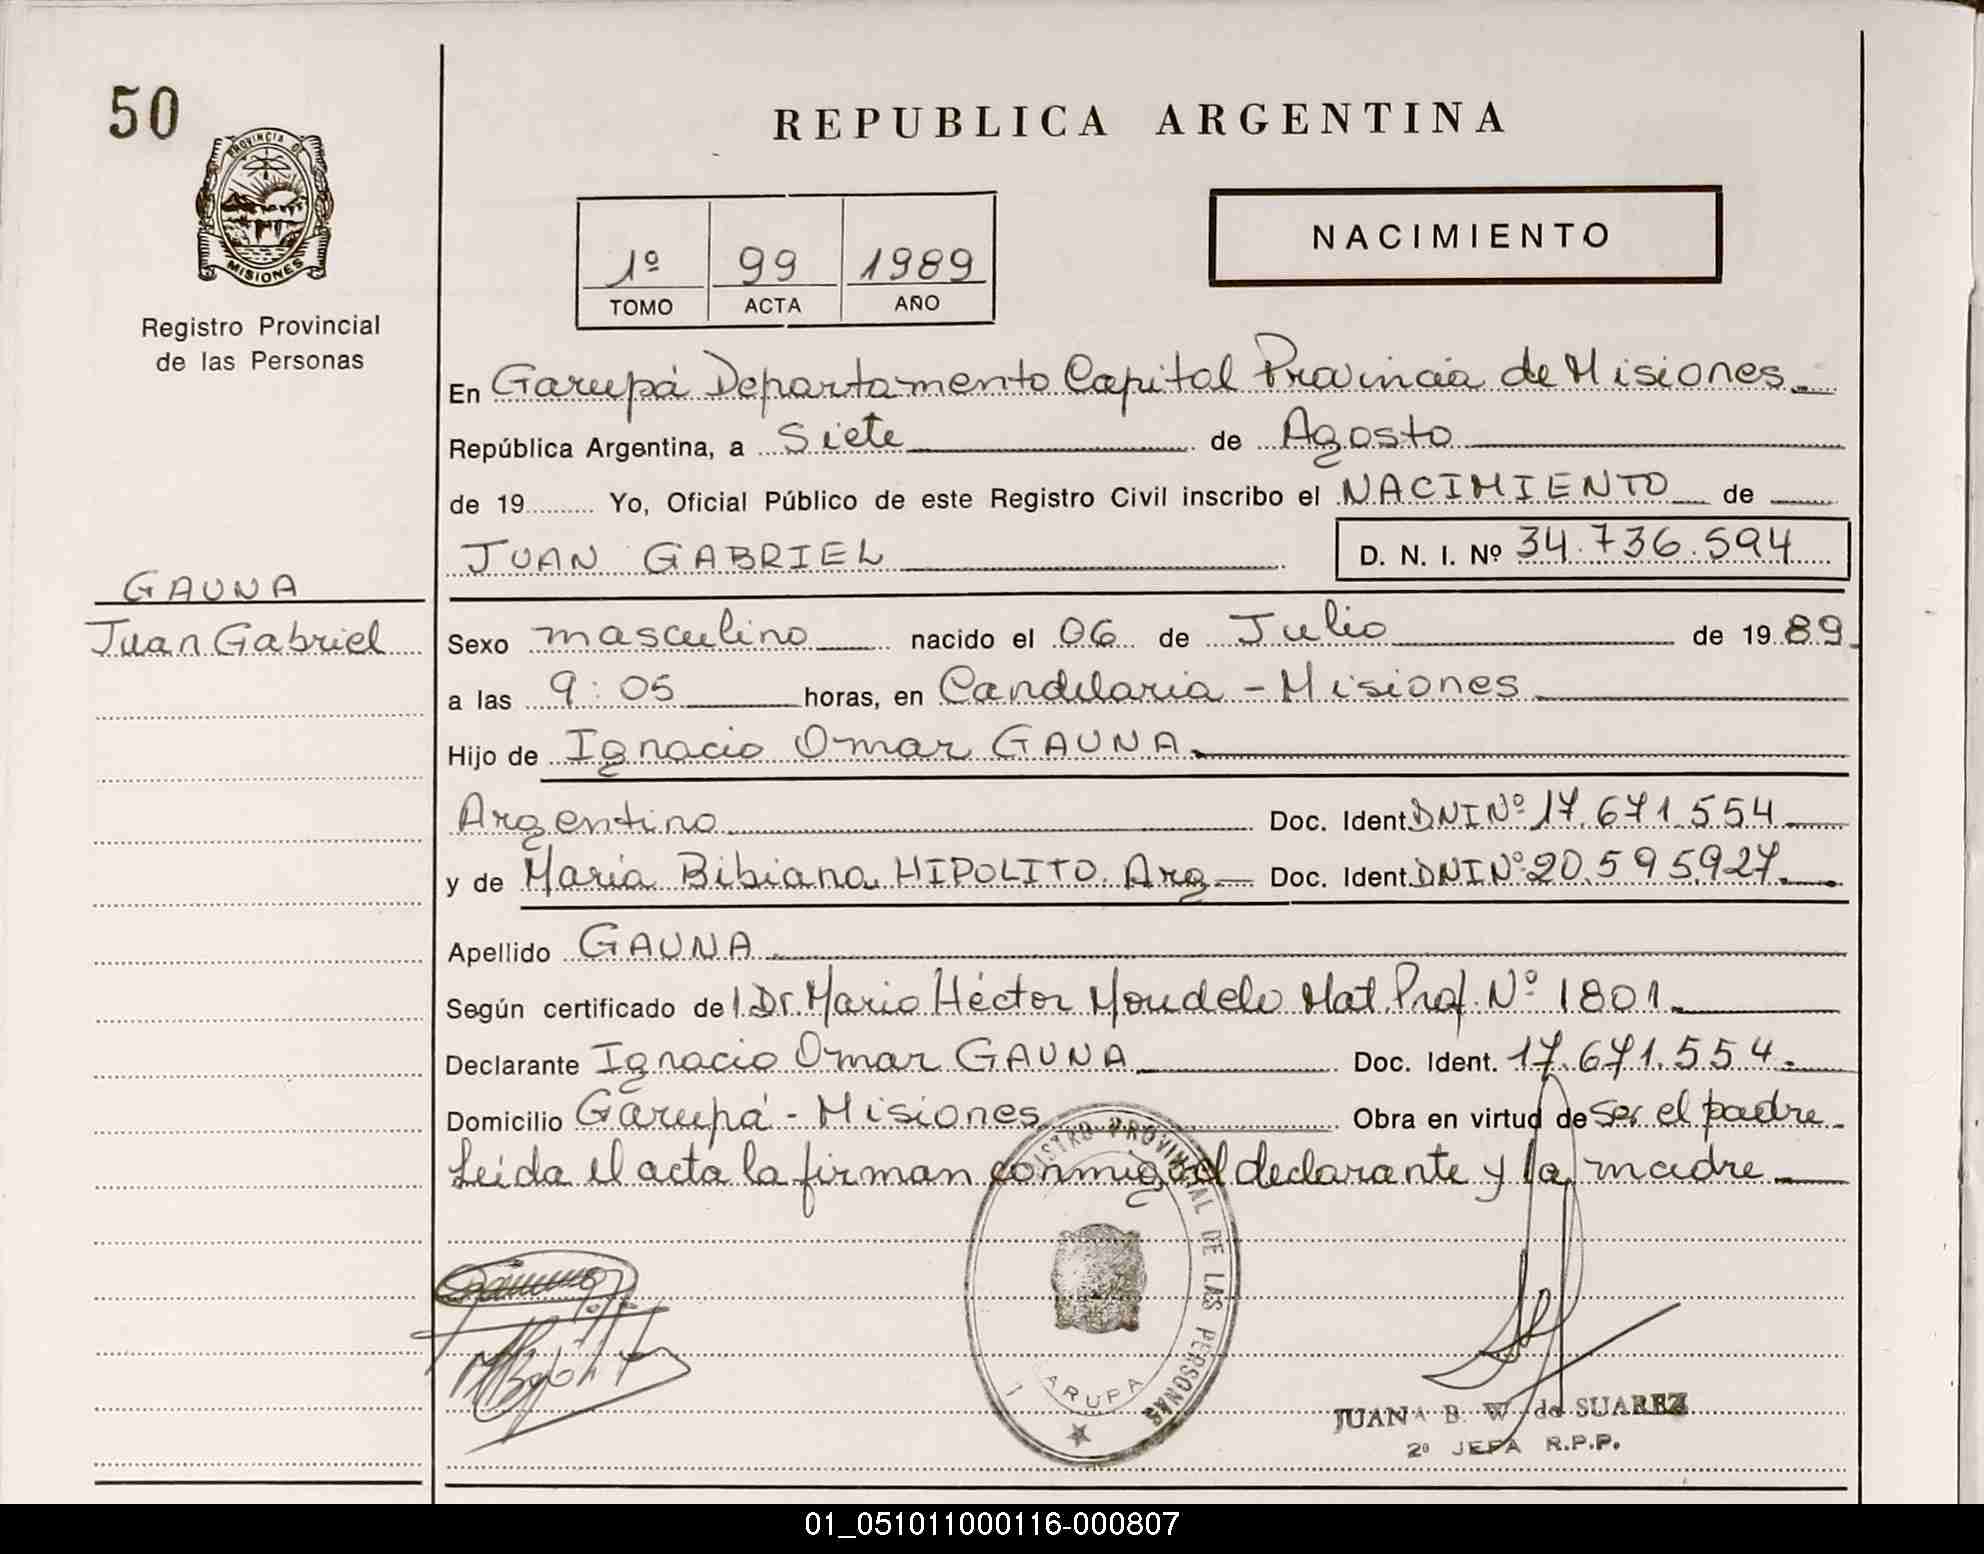 50
PROVINCIA DE
MISIONES
Registro Provincial
de las Personas
GAUNA
Juan Gabriel
REPUBLICA ARGENTINA
1º 99 1989
TOMO ACTA AÑO
NACIMIENTO
En Garupá Departamento Capital Provincia de Misiones.
República Argentina, a Siete de Agosto
de 19 Yo, Oficial Público de este Registro Civil inscribo el NACIMIENTO de
JUAN GABRIEL D. N. I. Nº 34.736.594
Sexo masculino nacido el 06 de Julio de 19 89
a las 9:05 horas, en Candelaria - Misiones
Hijo de Ignacio Omar GAUNA
Argentino Doc. Ident. DNI Nº 17.671.554
y de Maria Bibiana HIPOLITO. Arg Doc. Ident. DNI Nº 20.595.927.
Apellido GAUNA
Según certificado del Dr. Mario Héctor Moudelo Mat. Prof. Nº 1801.
Declarante Ignacio Omar GAUNA Doc. Ident. 17.671.554.
Domicilio Garupá - Misiones Obra en virtud de ser el padre.
Leida el acta la firman conmigo el declarante y la madre
REGISTRO PROVINCIAL DE LAS PERSONAS
GARUPA
JUANA B. W. de SUAREZ
2º JEFA R.P.P.
01_051011000116-000807